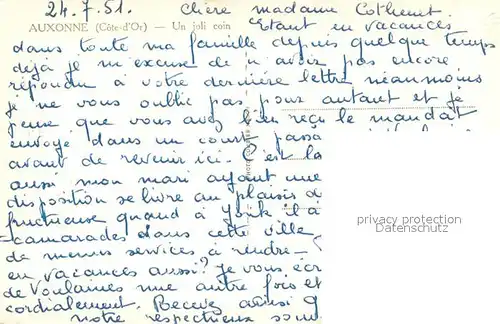 24.7.51. Chère madame Cothenet
AUXONNE (Côte-d'Or) — Un joli coin
Etant en vacances
dans toute ma famille depuis quelque temps
déjà je m'excuse de n'avoir pas encore
répondu à votre dernière lettre néanmoins
je ne vous oublie pas pour autant et je
pense que vous avez bien reçu le mandat
envoyé dans un court passa
avant de revenir ici. C'est la
aussi mon mari ayant une
disposition se livre au plaisirs d
fructueuse quand à il à
camarades dans cette ville
de menus services à rendre
en vacances aussi? Je vous écr
de Voulaines une autre fois et
cordialement. Recevez ainsi q
notre respectueux souv
privacy protection
Datenschutz